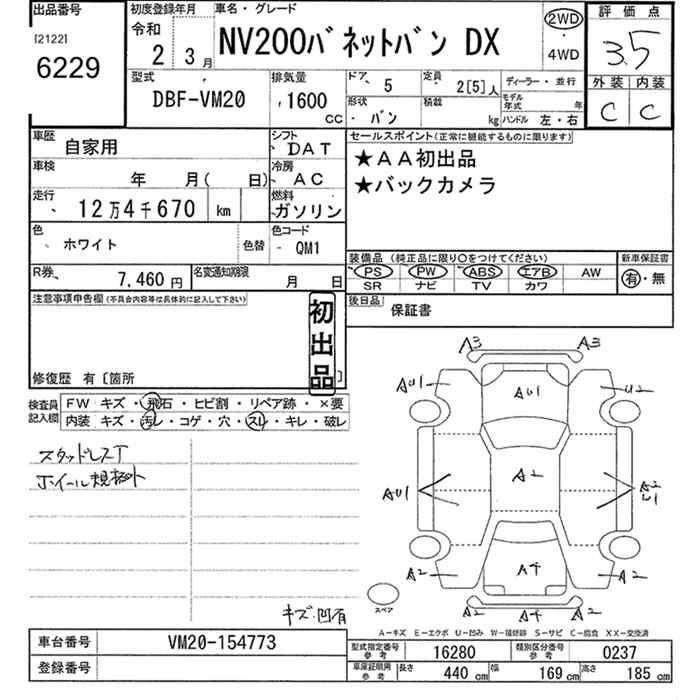 出品番号
[2122]
6229
初度登録年月
令和
2 3月
車名・グレード
NV200バネットバン DX
2WD
・
4WD
評価点
3.5
外装 内装
C C
型式
DBF-VM20
排気量
1600
CC
ドア
5
定員
2[5]人
ディーラー・並行
形状
バン
積載
kg
モデル年式
年
ハンドル 左・右
車歴
自家用
シフト
DAT
車検
年 月( 日)
冷房
AC
走行
12万4千670 km
燃料
ガソリン
色
ホワイト
色替
色コード
QM1
R券
7,460円
名変通知期限
月 日
セールスポイント(正常に機能するものに限ります)
★AA初出品
★バックカメラ
装備品(純正品に限り○をつけてください)
PS PW ABS エアB AW
SR ナビ TV カワ
新車保証書
有・無
後日品
保証書
注意事項申告欄(不具合内容等は具体的に記入して下さい)
初出品
修復歴 有〔箇所 〕
検査員記入欄
FW キズ・飛石・ヒビ割・リペア跡・×要
内装 キズ・汚レ・コゲ・穴・スレ・キレ・破レ
スタッドレスT
ホイール規格外
キズ・凹有
A3 A3
AU1 AU1 U2
AU1 A2 A2
L1
A2 A4 A2
A2 A4 A2
スペア
A-キズ E-エクボ U-凹み W-補修跡 S-サビ C-腐食 XX-交換済
車台番号
VM20-154773
登録番号
型式指定番号
参考
16280
類別区分番号
参考
0237
車庫証明用
参考
長さ 440 cm 幅 169 cm 高さ 185 cm